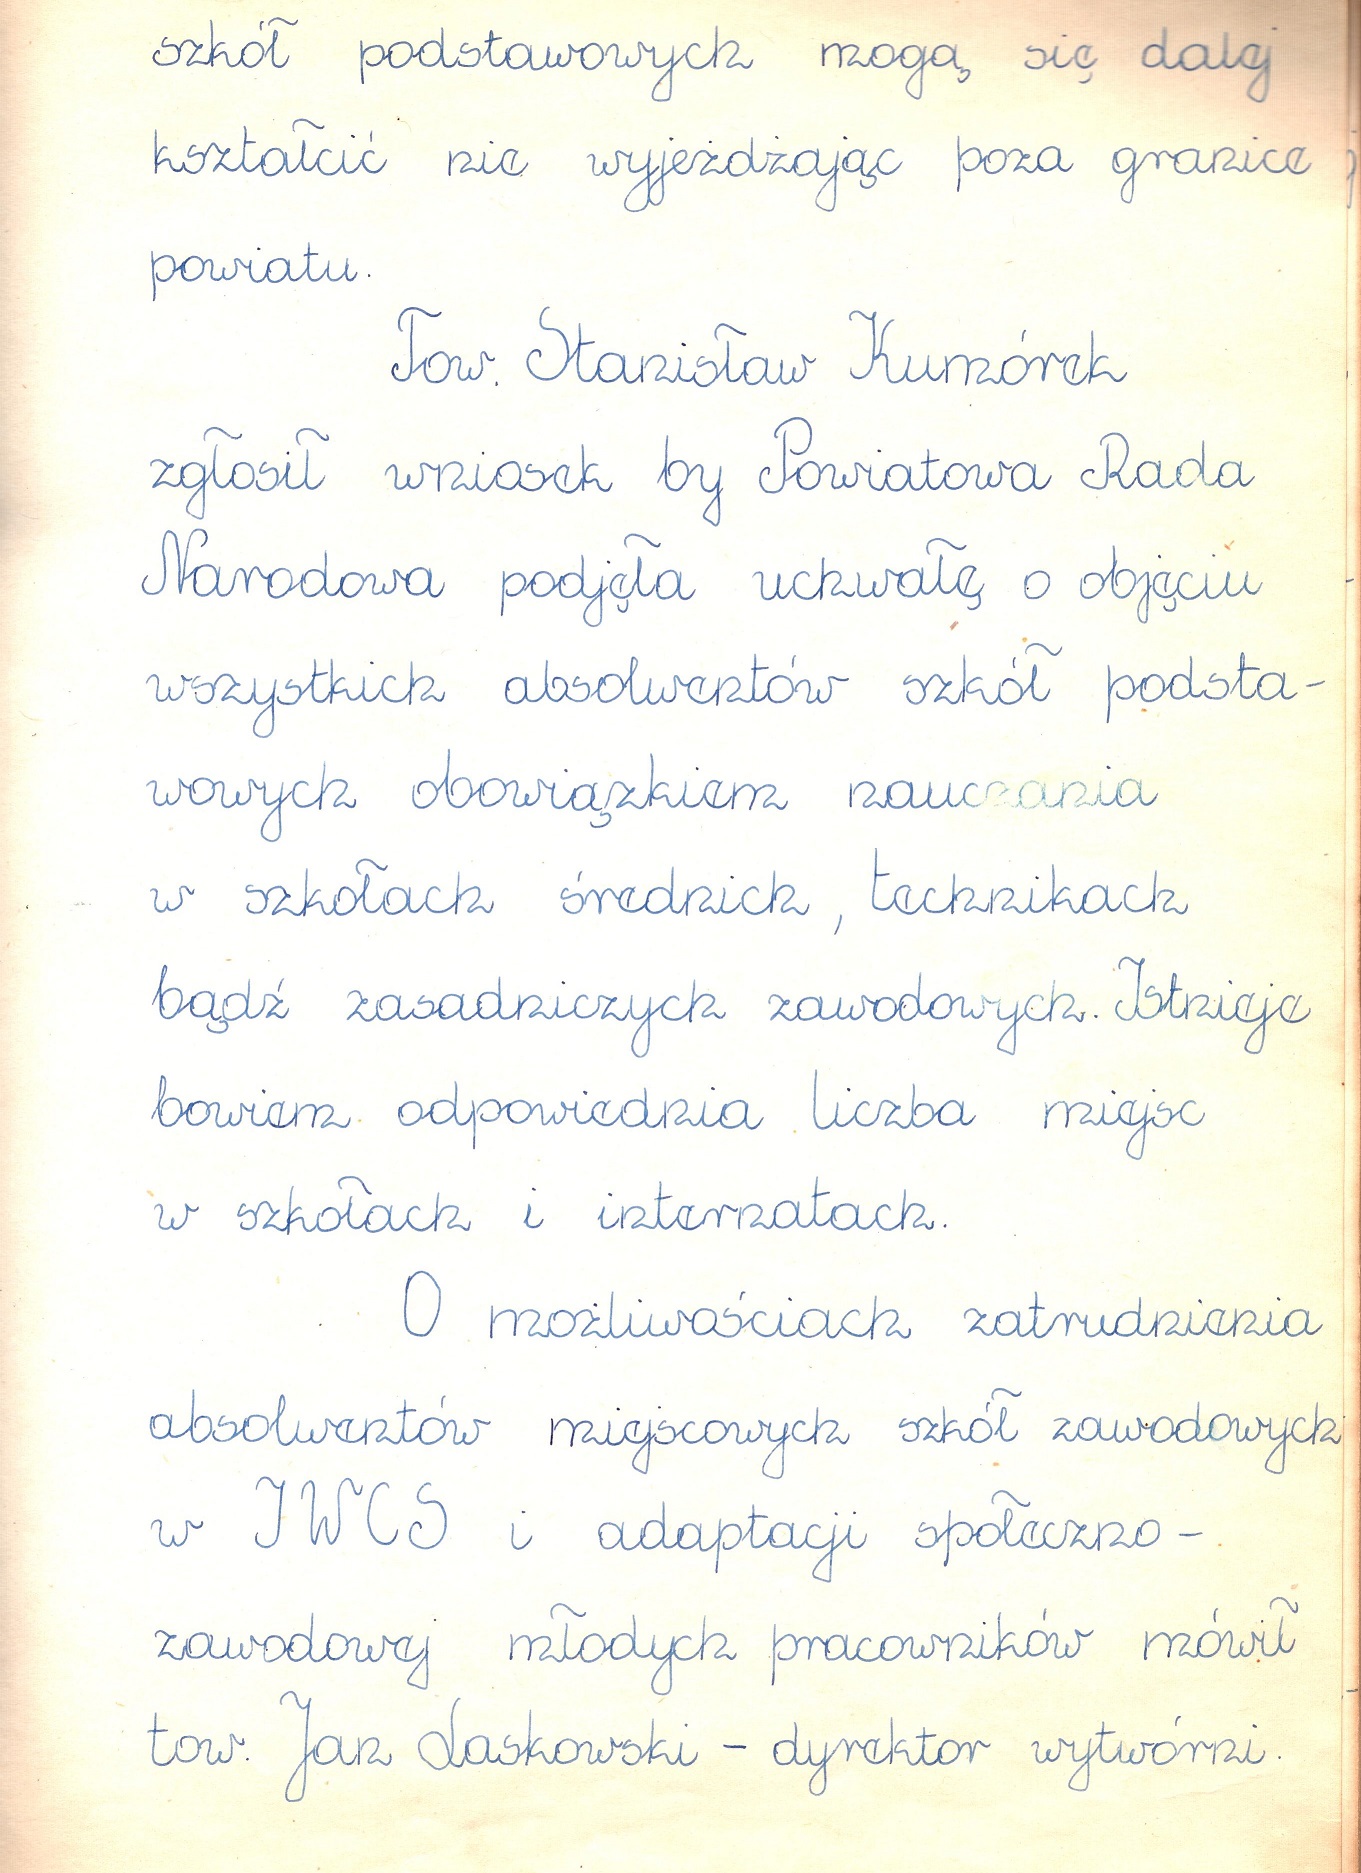 szkół podstawowych mogą się dalej
kształcić nie wyjeżdżając poza granice
powiatu.
Tow. Stanisław Kumórek
zgłosił wniosek by Powiatowa Rada
Narodowa podjęła uchwałę o objęciu
wszystkich absolwentów szkół podsta-
wowych obowiązkiem nauczania
w szkołach średnich, technikach
bądź zasadniczych zawodowych. Istnieje
bowiem odpowiednia liczba miejsc
w szkołach i internatach.
O możliwościach zatrudnienia
absolwentów miejscowych szkół zawodowych
w IWCS i adaptacji społeczno-
zawodowej młodych pracowników mówił
tow. Jan Laskowski - dyrektor wytwórni.